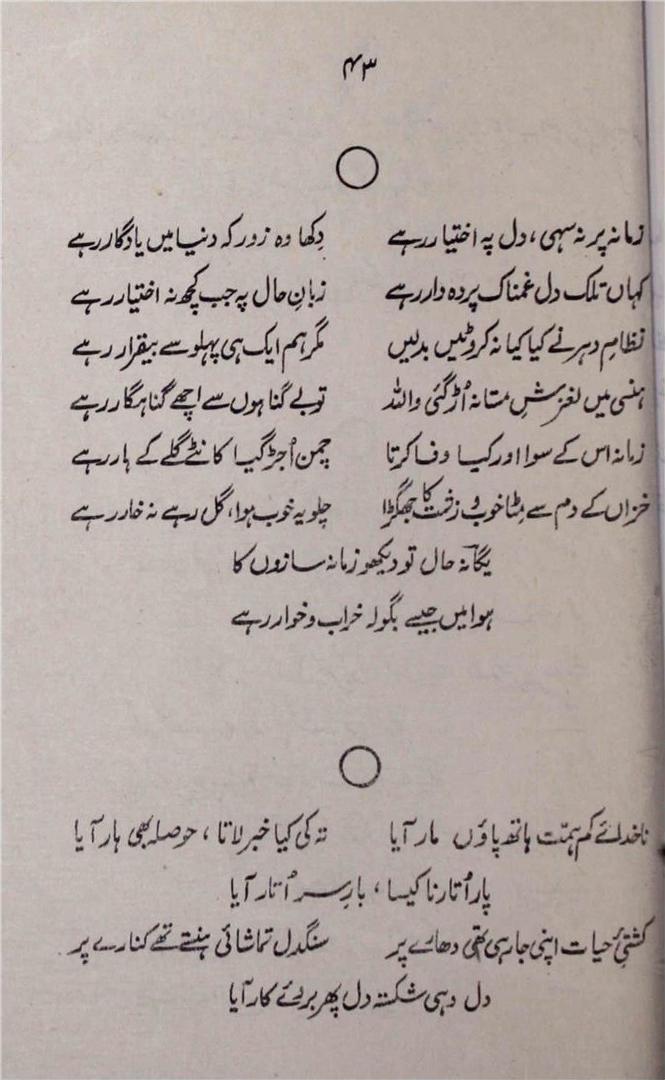 ۴۳
زمانہ پر نہ سہی، دل پہ اختیار رہے دکھا وہ زور کہ دنیا میں یادگار رہے
کہاں تلک دل غمناک پردہ دار رہے زبانِ حال پہ جب کچھ نہ اختیار رہے
نظامِ دہر نے کیا کیا نہ کروٹیں بدلیں مگر ہم ایک ہی پہلو سے بیقرار رہے
ہنسی میں لغزشِ مستانہ اُڑ گئی واللہ تو بے گناہوں سے اچھے گناہگار رہے
زمانہ اس کے سوا اور کیا وفا کرتا چمن اُجڑ گیا کانٹے گلے کے ہار رہے
خزاں کے دم سے مٹا خوب و زشت کا جھگڑا چلو یہ خوب ہوا، گل رہے نہ خار رہے
یگانہ حال تو دیکھو زمانہ سازوں کا
ہوا میں جیسے بگولہ خراب و خوار رہے
ناخدائے کم ہمّت ہاتھ پاؤں مار آیا تہ کی کیا خبر لاتا، حوصلہ بھی ہار آیا
پار اُتارنا کیسا، بارِ سر اُتار آیا
کشتیِٔ حیات اپنی جا رہی تھی دھارے پر سنگدل تماشائی ہنستے تھے کنارے پر
دل وہی شکستہ دل پھر بروئے کار آیا